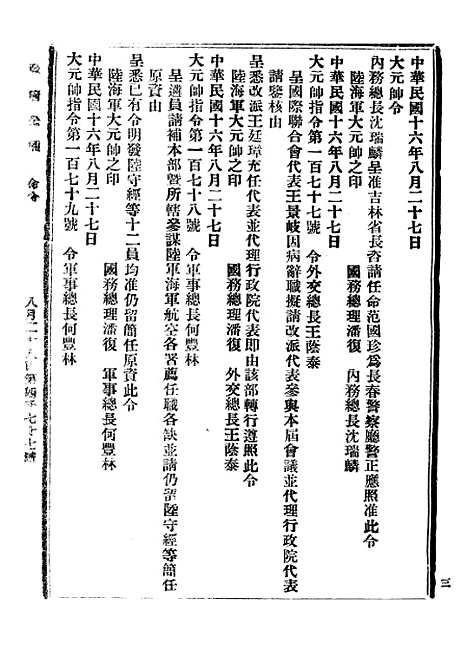 中華民國十六年八月二十七日
大元帥令
內務總長沈瑞麟呈准吉林省長咨請任命范國珍爲長春警察廳警正應照准此令
陸海軍大元帥之印　國務總理潘復　內務總長沈瑞麟
中華民國十六年八月二十七日
大元帥指令第一百七十七號　令外交總長王蔭泰
呈國際聯合會代表王景岐因病辭職擬請改派代表參與本屆會議並代理行政院代表
請鑒核由
呈悉改派王廷璋充任代表並代理行政院代表即由該部轉行遵照此令
陸海軍大元帥之印　國務總理潘復　外交總長王蔭泰
中華民國十六年八月二十七日
大元帥指令第一百七十八號　令軍事總長何豐林
呈遴員請補本部暨所轄參謀陸軍海軍航空各署薦任職各缺並請仍留陸守經等簡任
原資由
呈悉已有令明發陸守經等十二員均准仍留簡任原資此令
陸海軍大元帥之印　國務總理潘復　軍事總長何豐林
中華民國十六年八月二十七日
大元帥指令第一百七十九號　令軍事總長何豐林
公報　命令　八月二十　日第四千　七十七號
三